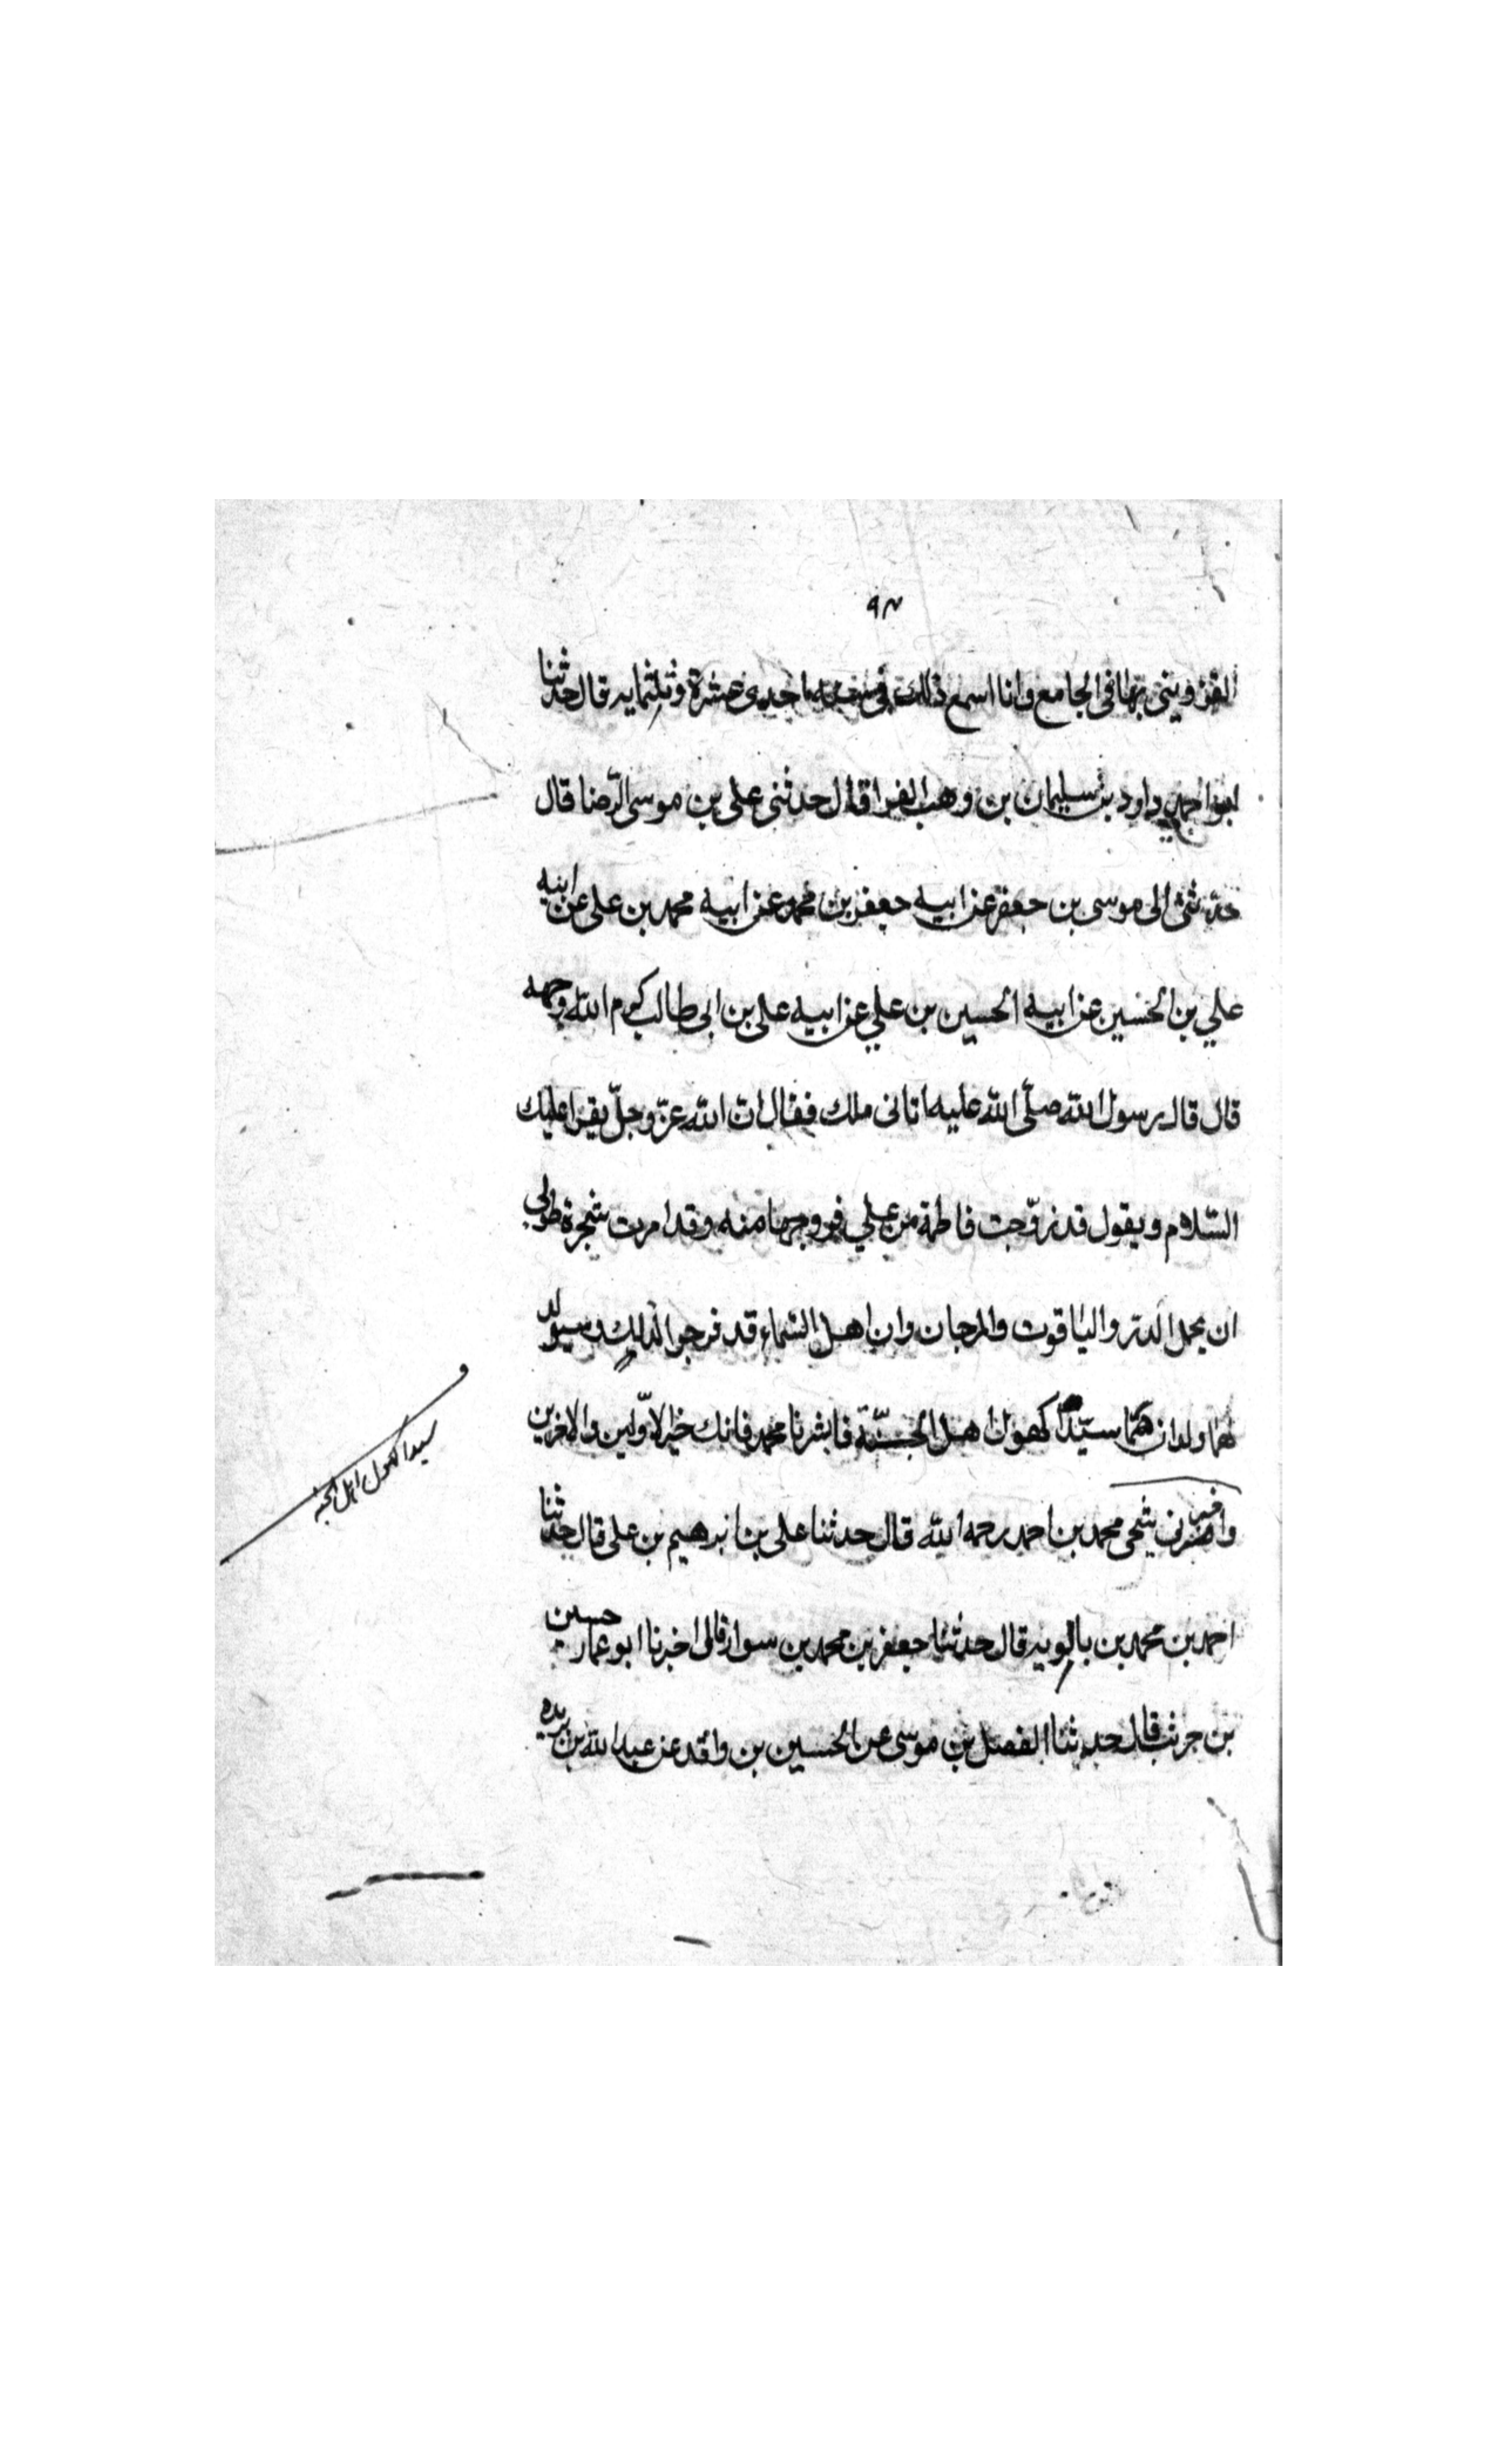 ٩٣
القزويني بها في الجامع وانا اسمع ذلك في سنه احدى عشرة وثلثمايه قال حدثنا
ابو احمد داود بن سليمان بن وهب الفرا قال حدثني علي بن موسى الرّضا قال
حدّثني ابي موسى بن جعفر عن ابيه جعفر بن محمد عن ابيه محمد بن علي عن ابيه
علي بن الحسين عن ابيه الحسين بن علي عن ابيه علي بن ابي طالب كرم الله وجهه
قال قال رسول الله صلّى الله عليه اتاني ملك فقال ان الله عزّ وجلّ يقرا عليك
السّلام ويقول قد زوّجت فاطمة من علي فزوجها منه وقد امرت شجرة طوبى
ان يحمل الدر والياقوت والمرجان وان اهل السّماء قد فرحوا لذلك وسيولد
لهما ولدان هما سيّدا كهول اهل الجنّة فابشر يا محمد فانك خير الاوّلين والاخرين
واخبرني شيخي محمد بن احمد رحمه الله قال حدثنا علي بن ابرهيم بن علي قال حدثنا
احمد بن محمد بن بالويه قال حدثنا جعفر بن محمد بن سوار قال اخبرنا ابو عمار حسين
بن حريث قال حدثنا الفضل بن موسى عن الحسين بن واقد عن عبد الله بن بريده
سيدا كهول اهل الجنه